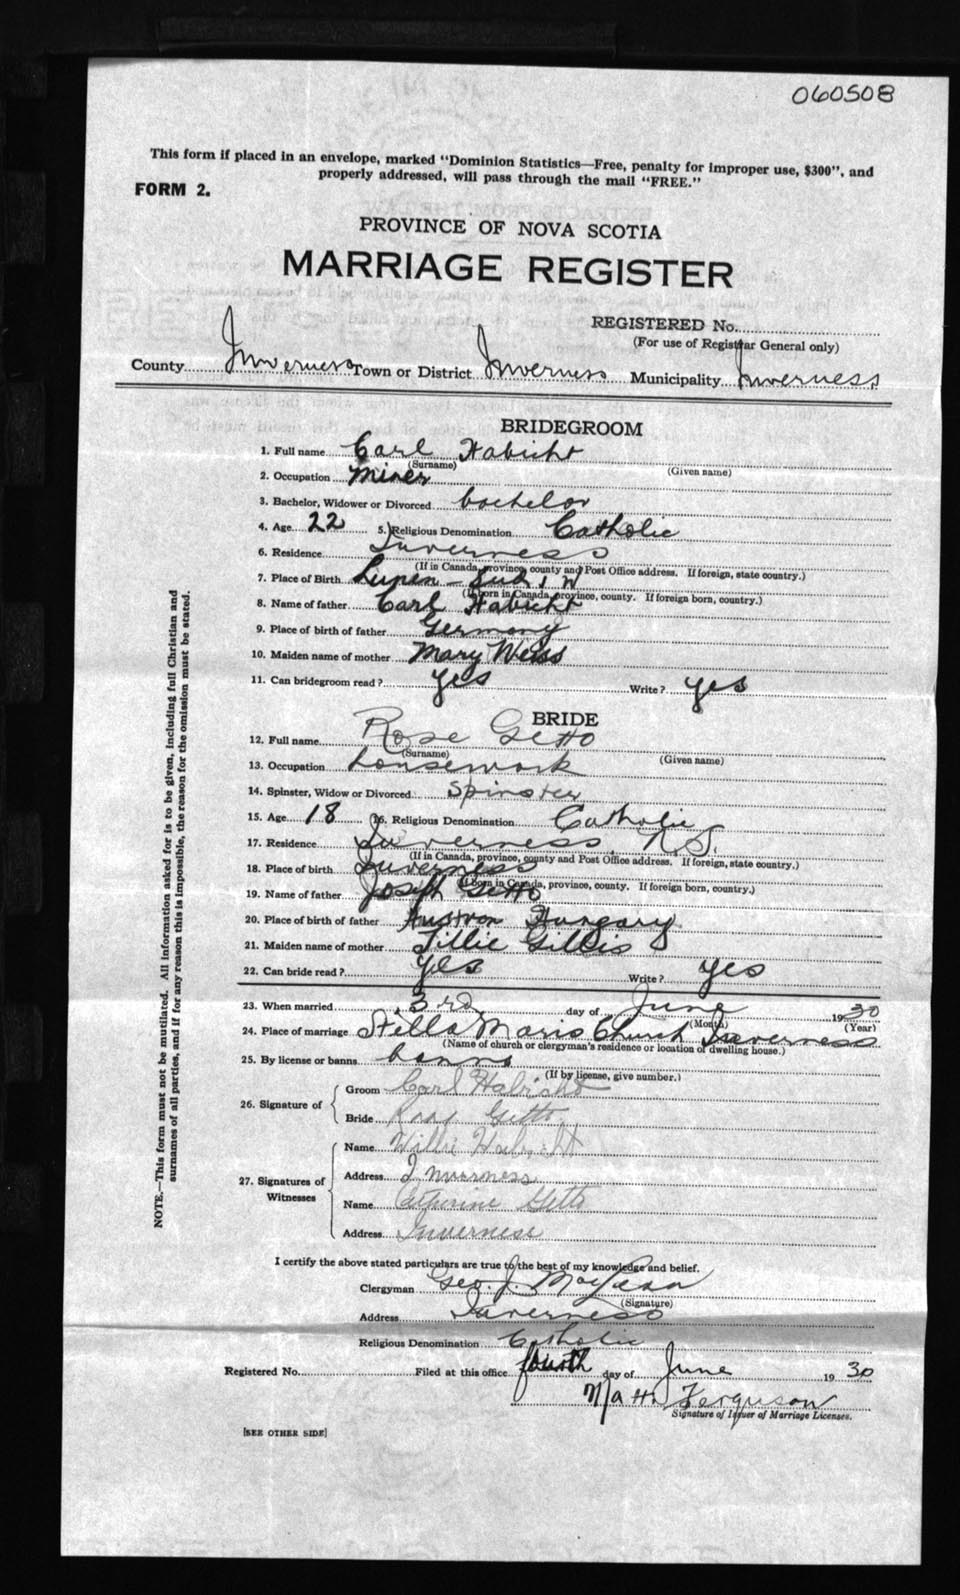 060508
This form if placed in an envelope, marked "Dominion Statistics—Free, penalty for improper use, $300", and
properly addressed, will pass through the mail "FREE."
FORM 2.
PROVINCE OF NOVA SCOTIA
MARRIAGE REGISTER
REGISTERED No.
(For use of Registrar General only)
County Inverness Town or District Inverness Municipality Inverness
BRIDEGROOM
1. Full name Carl Habicht
(Surname) (Given name)
2. Occupation miner
3. Bachelor, Widower or Divorced bachelor
4. Age 22 5. Religious Denomination Catholic
6. Residence Inverness
(If in Canada, province, county and Post Office address. If foreign, state country.)
7. Place of Birth
(If born in Canada, province, county. If foreign born, country.)
8. Name of father Carl Habicht
9. Place of birth of father Germony
10. Maiden name of mother Mary Weiss
11. Can bridegroom read? yes Write? yes
BRIDE
12. Full name Rose Getto
(Surname) (Given name)
13. Occupation housework
14. Spinster, Widow or Divorced spinster
15. Age 18 16. Religious Denomination Catholic
17. Residence Inverness, N.S.
(If in Canada, province, county and Post Office address. If foreign, state country.)
18. Place of birth Inverness
(If born in Canada, province, county. If foreign born, country.)
19. Name of father Joseph Getto
20. Place of birth of father Hungary
21. Maiden name of mother Tillie Gillis
22. Can bride read? yes Write? yes
23. When married 3rd day of June 1930
(Month) (Year)
24. Place of marriage Stella Maris Church Inverness
(Name of church or clergyman's residence or location of dwelling house.)
25. By license or banns banns
(If by license, give number.)
26. Signature of
Groom Carl Habricht
Bride Rose Getto
27. Signatures of Witnesses
Name Willie Habricht
Address Inverness
Name Catherine Getto
Address Inverness
I certify the above stated particulars are true to the best of my knowledge and belief.
Clergyman Geo. J.
(Signature)
Address Inverness
Religious Denomination Catholic
Registered No. Filed at this office fourth day of June 1930
Matt. Ferguson
Signature of Issuer of Marriage Licenses.
[SEE OTHER SIDE]
NOTE.—This form must not be mutilated. All information asked for is to be given, including full Christian and
surnames of all parties, and if for any reason this is impossible, the reason for the omission must be stated.